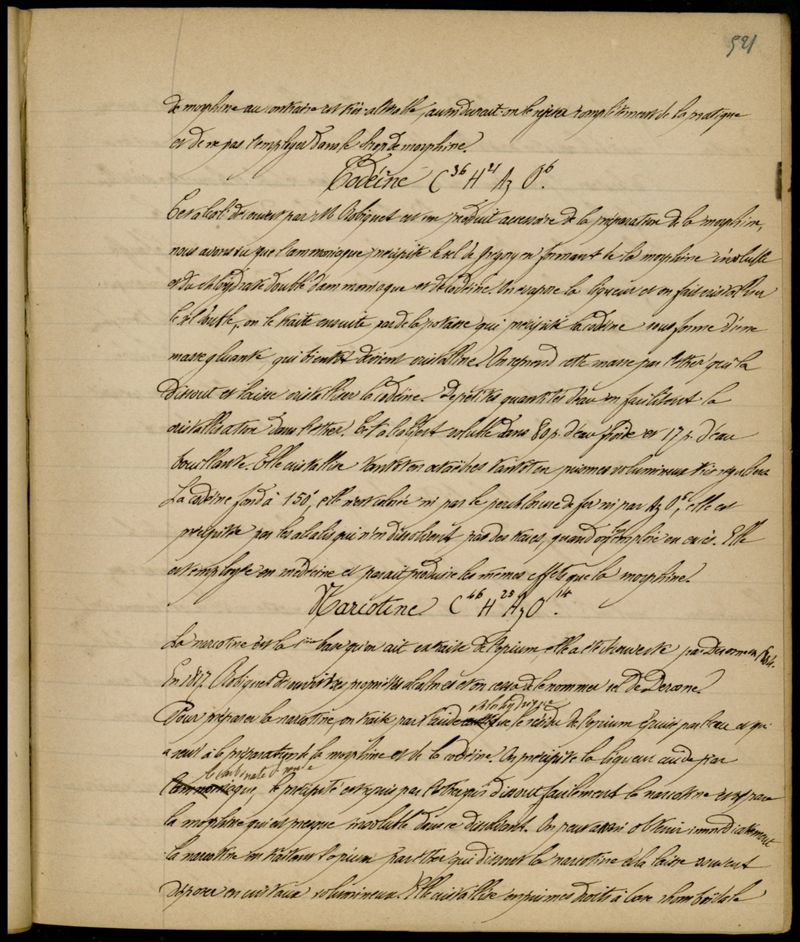 521
de morphine au contraire est très altérable, aussi devrait-on le rejeter complètement de la pratique
et de ne pas l'employer dans le sirop de morphine.
Codéine C36 H21 Az O6.
Cet alcali découvert par M Robiquet est un produit accessoire de la préparation de la morphine,
nous avons vu que l'ammoniaque précipite le sel de Gregory en formant de la morphine insoluble
et du chlorhydrate double d'ammoniaque et de codéine. On évapore la liqueur et on fait cristalliser
le sel double, on le traite ensuite par de la potasse qui précipite la codéine sous forme d'une
masse gluante qui bientôt devient cristalline. On reprend cette masse par l'éther qui la
dissout et laisse cristalliser la codéine. De petites quantités d'eau en facilitent la
cristallisation dans l'éther. Cet alcali est soluble dans 80 p. d'eau froide et 17 p. d'eau
bouillante. Elle cristallise tantôt en octaèdres tantôt en prismes volumineux très réguliers
La codéine fond à 150°, elle n'est colorée ni par le perchlorure de fer ni par Az O5, elle est
précipitée par les alcalis qui n'en dissolvent pas des traces, quand on les emploie en excès. Elle
est employée en médecine et paraît produire les mêmes effets que la morphine.
Narcotine C46 H25 Az O14.
La narcotine est la 1ère base qu'on ait extraite de l'opium, elle a été découverte par Derosne en 1804.
En 1817 Robiquet découvrit ses propriétés alcalines et on cessa de le nommer sel de Derosne.
Pour préparer la narcotine, on traite par l'acide chlorhydrique le résidu de l'opium épuisé par l'eau et qui
a servi à la préparation de la morphine et de la codéine. On précipite la liqueur acide par
le carbonate de soude
l'ammoniaque, le précipité est repris par l'éther qui dissout facilement la narcotine et sépare
la morphine qui est presque insoluble dans ce dissolvant. On peut aussi obtenir immédiatement
la narcotine en traitant l'opium par l'éther qui dissout la narcotine et la laisse souvent
déposer en cristaux volumineux. Elle cristallise en prismes droits à base rhomboïdale